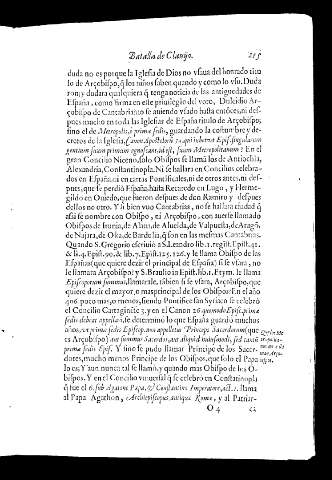 Batalla de Clavijo. 215
duda no es porque la Iglesia de Dios no vsaua del honrado titu
lo de Arçobispo, q̃ los niños saben quando y como lo vsò. Duda
ron, y dudara qualquiera q̃ tenga noticia de las antiguedades de
España, como firma en este priuilegio del voto, Dulcidio Ar-
çobispo de Cantabria no se auiendo vsado hasta entóces, ni des-
pues mucho en toda las Iglesias de España titulo de Arçobispo,
sino el de Metropolis, ò prima sedis, guardando la costumbre y de-
cretos de la Iglesia,
gentium suam primum agnoscant, id est, suum Metropolitanum? En el
gran Concilio Niceno, solo Obispos se llamã los de Antiochia,
Alexandria, Constantinopla. Ni se hallara en Concilios celebra-
dos en España ni en cartas Pontificales, ni de otros antes, ni des-
pues, que se perdio España hasta Recaredo en Lugo, y Herme-
gildo en Ouiedo, que fueron despues de don Ramiro y despues
dellos no otro. Y si bien vuo Cantabrias, no se hallara ciudad q̃
dẽ si se nombre con Obispo, ni Arçobispo, con auerse llamado
Obispos de Iruña, de Alaua, de Alueida, de Valpuesta, de Aragõ,
de Najara, de Oka, de Bardulia, q̃ son en las mesmas Cantabrias.
Quando S. Gregorio escriuio a S. Leandro lib. 1. regist. Epist. 41.
& li. 4. Epist. 90. & lib. 7. Epist. 125. 126. y le llama Obispo de las
Españas (que quiere dezir el principal de España) si se vsara, no
le llamara Arçobispo? y S. Braulio in Epist. lib. 1. Etym. le llama
Episcoporum summus, llamarale, tãbien si se vsara, Arçobispo, que
quiere dezir el mayor, o mas principal de los Obispos. En el año
406 poco mas, o menos, siendo Pontifice san Syriaco se celebrò
el Concilio Cartaginẽse 3. y en el Canon 26 quomodo Episc. prima
sedis debeat appellari, se determinò lo que España guardò muchos
años, vt prima sedis Episcop. non appelletur Princeps Sacerdotum (que
es Arçobispo) aut summus Sacerdos, aut aliquid huiusmodi, sed tantũ
prima sedis Episc. Y sino se pudo llamar Principe de los Sacer-
dotes, mucho menos Principe de los Obispos, que solo el Papa
lo es. Y aun nunca tal se llamò, y quando mas Obispo de los O-
bispos. Y en el Concilio vniuersal q̃ se celebrò en Constãtinopla
q̃ fue el 6. sub Agatone Papa, & Constantino Imperatore, act. 2. llaman
al Papa Agathon, Archiepiscopus antiquæ Romæ, y al Patriar-
O 4 ca